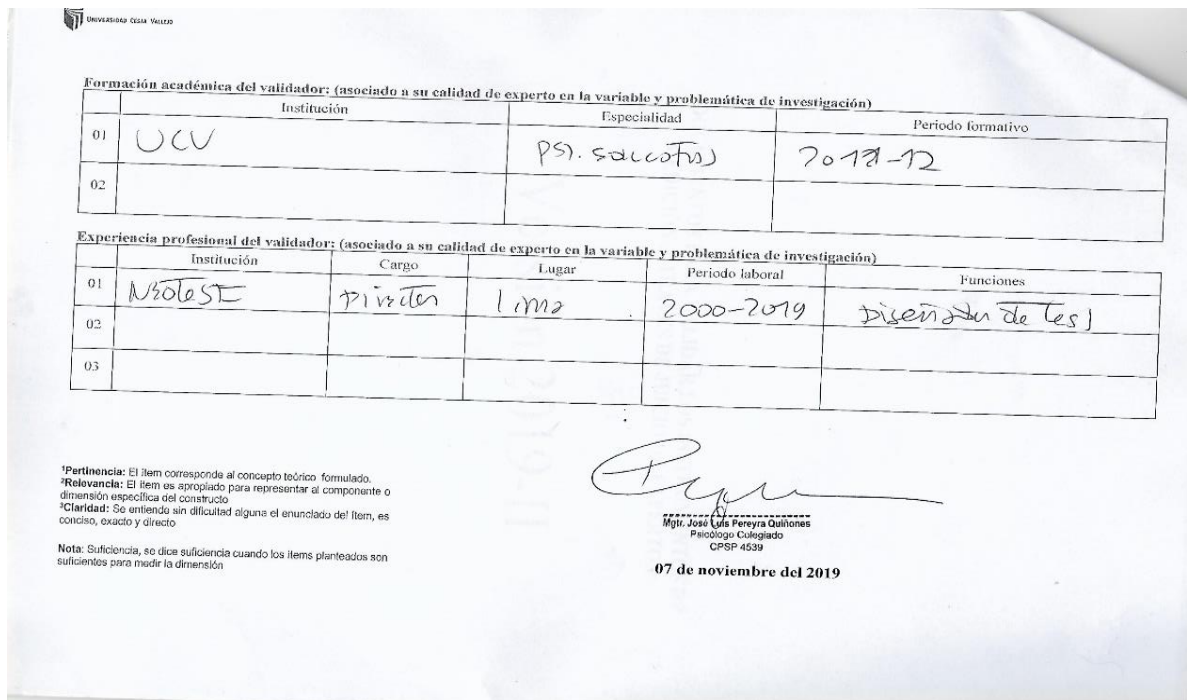 UNIVERSIDAD CÉSAR VALLEJO
Formación académica del validador: (asociado a su calidad de experto en la variable y problemática de investigación)
Institución Especialidad Periodo formativo
01 UCV PSI.
02
Experiencia profesional del validador: (asociado a su calidad de experto en la variable y problemática de investigación)
Institución Cargo Lugar Periodo laboral Funciones
01 Director Lima 2000-2019 Diseñador de
02
03
¹Pertinencia: El ítem corresponde al concepto teórico formulado.
²Relevancia: El ítem es apropiado para representar al componente o
dimensión específica del constructo
³Claridad: Se entiende sin dificultad alguna el enunciado del ítem, es
conciso, exacto y directo
Nota: Suficiencia, se dice suficiencia cuando los ítems planteados son
suficientes para medir la dimensión
Mgtr. José Luis Pereyra Quiñones
Psicólogo Colegiado
CPSP 4539
07 de noviembre del 2019